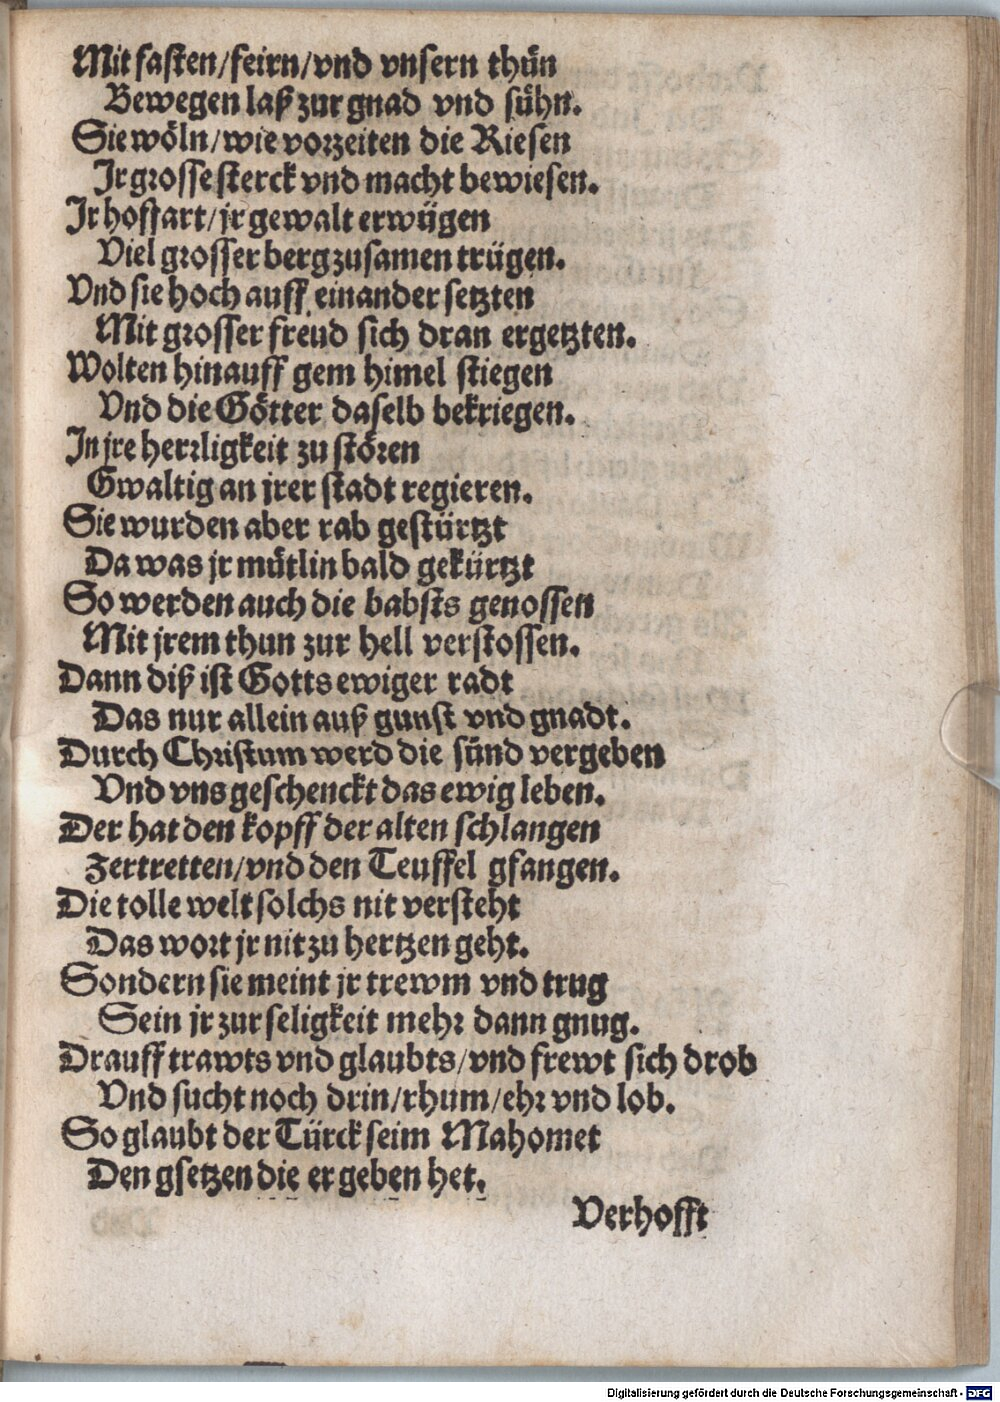 Mit fasten/feirn/vnd vnsern thůn
Bewegen laß zur gnad vnd sůhn.
Sie wöln/wie vorzeiten die Riesen
Jr grosse sterck vnd macht bewiesen.
Jr hoffart/jr gewalt erwügen
Viel grosser berg zusamen trügen.
Vnd sie hoch auff einander setzten
Mit grosser freud sich dran ergetzten.
Wolten hinauff gem himel stiegen
Vnd die Götter daselb bekriegen.
In jre herrligkeit zu stören
Gwaltig an jrer stadt regieren.
Sie wurden aber rab gestürtzt
Da was jr můtlin bald gekürtzt
So werden auch die babsts genossen
Mit jrem thun zur hell verstossen.
Dann diß ist Gotts ewiger radt
Das nur allein auß gunst vnd gnadt.
Durch Christum werd die sünd vergeben
Vnd vns geschenckt das ewig leben.
Der hat den kopff der alten schlangen
Zertretten/vnd den Teuffel gfangen.
Die tolle welt solchs nit versteht
Das wort jr nit zu hertzen geht.
Sondern sie meint jr trewm vnd trug
Sein jr zur seligkeit mehr dann gnug.
Drauff trawts vnd glaubts/vnd frewt sich drob
Vnd sucht noch drin/rhum/ehr vnd lob.
So glaubt der Türck seim Mahomet
Den gsetzen die er geben het.
Verhofft
Digitalisierung gefördert durch die Deutsche Forschungsgemeinschaft - DFG